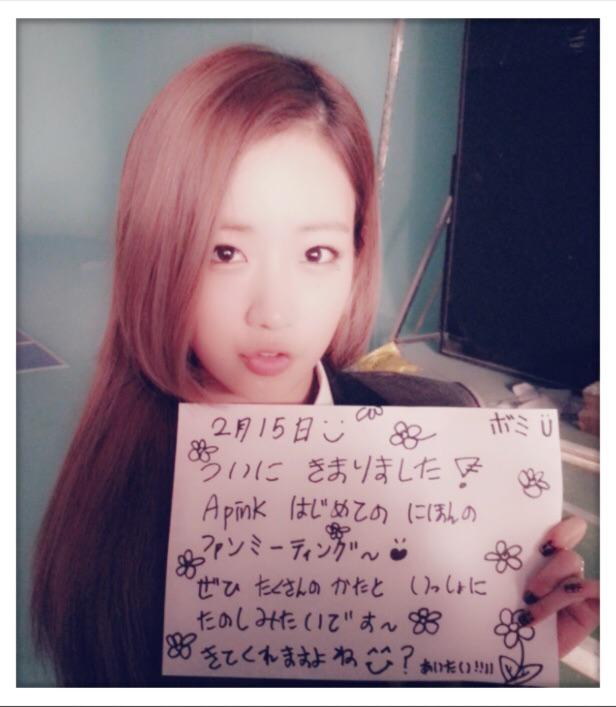 2月15日 ボミ
ついに きまりました!
Apink はじめての にほんの
ファンミーティング〜
ぜひ たくさんの かたと いっしょに
たのしみたいです〜
きてくれますよね? あいたい!!!!